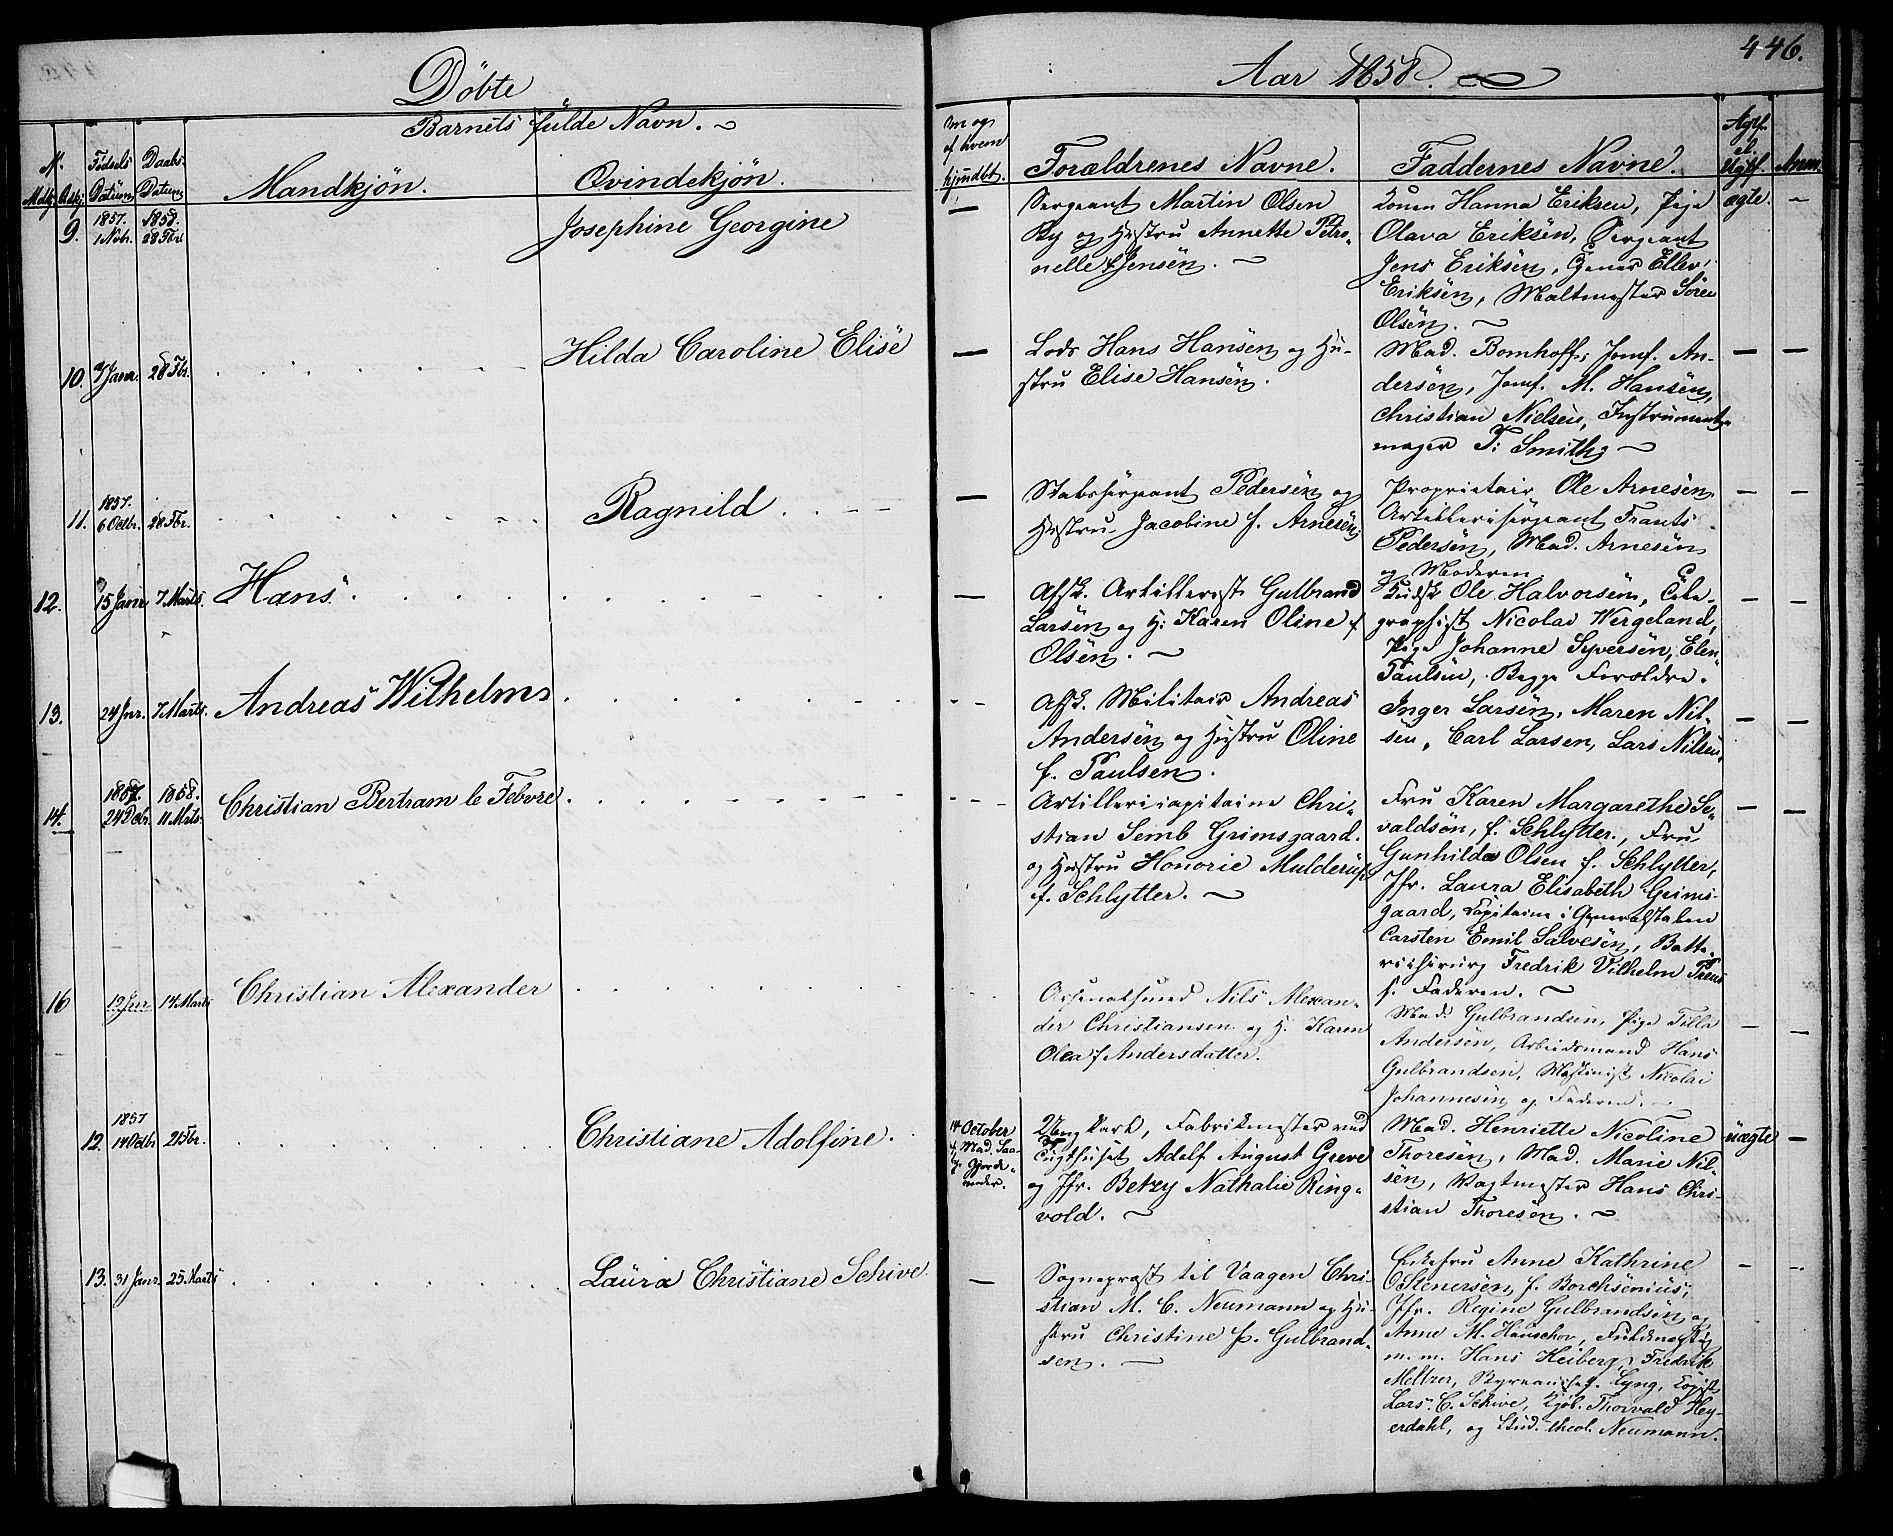 446.
Döbte
Aar 1858.
Barnets fulde Navn.
No. Mdkj. Qdkj.
Fødsels Datum
Daabs Datum
Mandkjön.
Qvindekjön.
Forældrenes Navne.
Faddernes Navne.
Anm.
9. 1857. 1 Nvbr. 1858. 28 Fbr.
Josephine Georgine
Sergeant Martin Olsen
By og Hustru Annette Petro-
nelle f. Jensen.
Konen Hanna Eriksen, Pige
Olava Eriksen, Sergeant
Jens Eriksen, Ellev
Eriksen, Maltmester Sören
Olsen.
ægte.
10. 7 Janr. 28 Fbr.
Hilda Caroline Elise
Lods Hans Hansen og Hu-
stru Elise Hansen.
Mad. Bomhoff, Jomf. An-
dersen, Jomf. M. Hansen,
Christian Nielsen, Instrument-
mager T. Smith
11. 1857. 6 Octbr. 28 Fbr.
Ragnild
Stabssergeant Pedersen og
Hustru Jacobine f. Arnesen
Proprietair Ole Arnesen
Artillerisergeant Frants
Pedersen, Mad. Arnesen
og Moderen
12. 15 Janr 7 Marts.
Hans
Afsk. Artillerist Gulbrand
Larsen og H. Karen Oline f.
Olsen.
Kudsk Ole Halvorsen, Tele-
graphist Nicolai Wergeland,
Pige Johanne Syversen, Elen
Paulsen, Begge Forældre.
13. 24 Jnr. 7 Marts.
Andreas Wilhelm
Afsk. Militair Andreas
Andersen og Hustru Oline
f. Paulsen.
Inger Larsen, Maren Nil-
sen, Carl Larsen, Lars Nilsen
14. 1857. 24 Dcbr. 1858. 11 Mrts.
Christian Bertram le Febvre
Artillericapitaine Chri-
stian Semb Grimsgaard
og Hustru Honorie Mulderup
f. Schlytter.
Fru Karen Margarethe Se-
valdsön, f. Schlytter, Fru
Gunhilda Olsen f. Schlytter,
Jfr. Laura Elisabeth Grims-
gaard, Capitaine i Generalstaben
Carsten Emil Salvesen, Batte-
richirurg Fredrik Vilhelm
Faderen.
16 19 Jnr 14 Marts
Christian Alexander
Arsenalsmed Nils Alexan-
der Christiansen og H. Karen
Olea f. Andersdatter.
Mad. Gulbrandsen, Pige Tilla
Andersen, Arbeidsmand Hans
Gulbrandsen, Maskinist Nicolai
Johannesen og Faderen.
12. 1857 14 Octbr 21 Fbr.
Christiane Adolfine.
14 October
Mad. Saa-
Gjorde-
moder.
Ungkarl, Fabrikmester ved
Tugthuset Adolf August Greve
og Jfr. Betzy Nathalie Ring-
vold.
Mad. Henriette Nicoline
Thoresen, Mad. Marie Nil-
sen, Vagtmester Hans Chri-
stian Thoresen.
uægte
13. 31 Janr. 25 Marts
Laura Christiane Schive.
Sognepræst til Vaagen Chri-
stian M. C. Neumann og Hu-
stru Christine f. Gulbrand-
sen.
Enkefru Anne Kathrine
Stenersen f. Borchsenius,
Jfr. Regine Gulbrandsen og
Anne M. Hauschov, Fuldmægtig
m. m. Hans Heiberg, Fredrik
Meltzer, Byreauchef Lyng, Copist
Lars C. Schive, Kjöb. Thorvald Hey-
erdahl, og Stud. theol. Neumann.